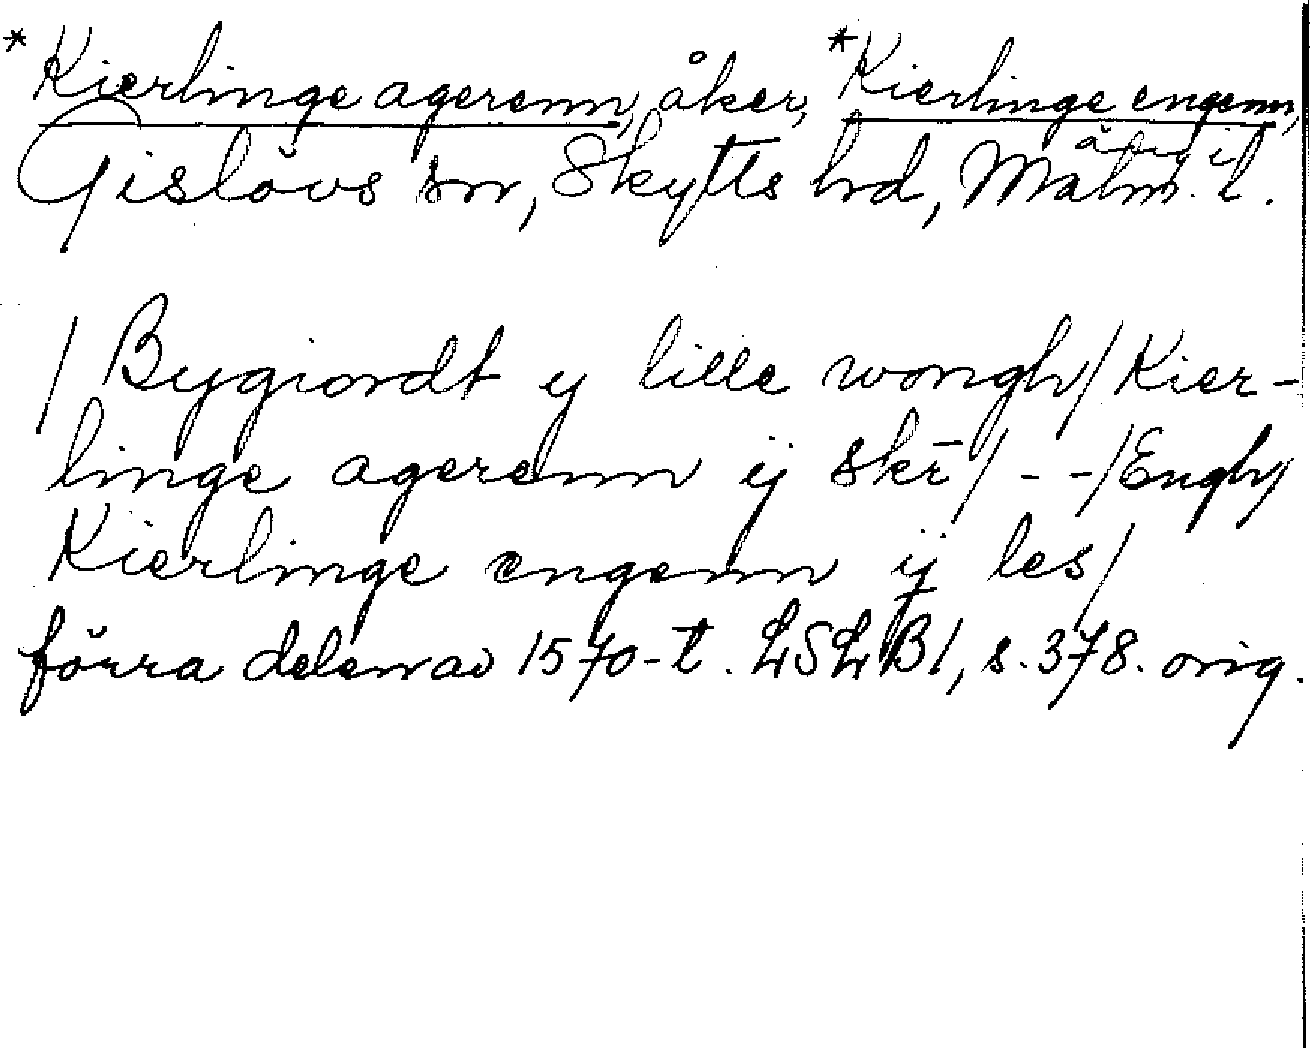 *Kierlinge agerenn, åker, *Kierlinge engenn,
Gislövs sn, Skytts hd, Malm. l.
/ Bygiordt ij lille wongh/ Kier-
linge agerenn ij skē/ - -/Engh/
Kierlinge engenn ij les/
förra delen av 1570-t. LSLB1, s. 378. orig.